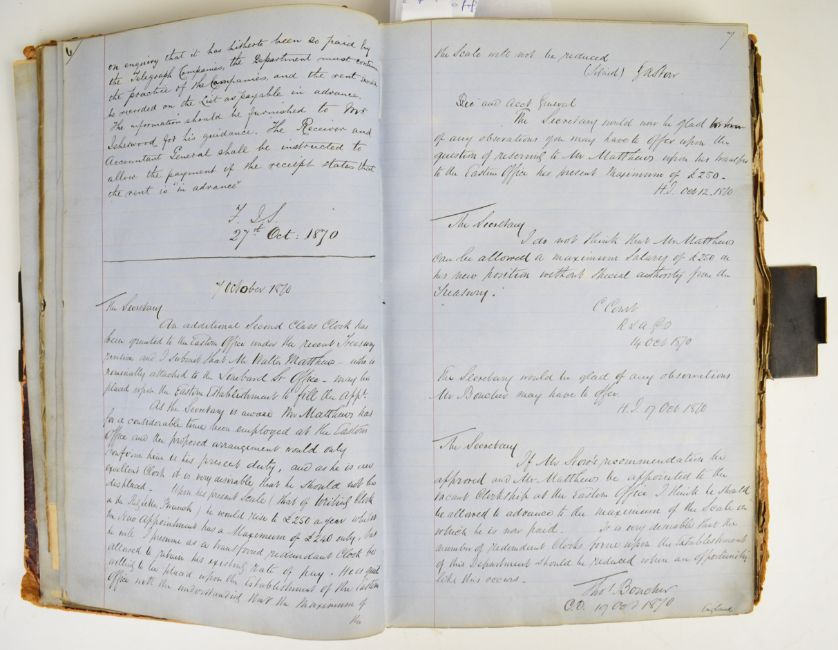 6
on enquiry that it has hitherto been so paid by
the Telegraph Companies, the Department must continue
the practice of the Companies, and the rent must
be recorded on the List as payable in advance.
The information should be furnished to Mr
Isherwood for his guidance. The Receiver and
Accountant General shall be instructed to
allow the payment of the receipt states that
the rent is "in advance"
F. I. S.
27th Oct: 1870
7 October 1870
The Secretary
An additional Second Class Clerk has
been granted to the Eastern Office under the recent Treasury
revision and I submit that Mr Walter Matthews – who is
nominally attached to the Lombard St Office – may be
placed upon the Eastern Establishment to fill the Appt.
As the Secretary is aware Mr Matthews has
for a considerable time been employed at the Eastern
Office and the proposed arrangement would only
him in his present duty, and as he is an
excellent Clerk it is very desirable that he should not be
displaced. Upon his present Scale (that of Writing Clerk
in the Branch) he would rise to £250 a year whilst
the New Appointment has a Maximum of £240 only, but
he will I presume as a transferred redundant Clerk be
allowed to retain his existing rate of pay. He is quite
willing to be placed upon the Establishment of the Eastern
Office with the understanding that the Maximum of
the
7
the Scale will not be reduced
(Signed)
Rec and Acct General
The Secretary would now be glad
of any observations you may have to offer upon the
question of reserving to Mr Matthews upon his transfer
to the Eastern Office his present Maximum of £250.
H.J. Oct 12. 1870
The Secretary
I do not think that Mr Matthews
can be allowed a maximum Salary of £250 in
his new position without special authority from the
Treasury.
C Court
R & A G O
14 Oct 1870
The Secretary would be glad of any observations
Mr Boucher may have to offer.
H.J. 17 Oct 1870
The Secretary
If Mr Stow's recommendation be
approved and Mr Matthews be appointed to the
vacant Clerkship at the Eastern Office I think he should
be allowed to advance to the maximum of the Scale on
which he is now paid. It is very desirable that the
number of redundant Clerks borne upon the Establishment
of this Department should be reduced when an opportunity
like this occurs.
Thos. Boucher
C.O. 19 Oct 1870